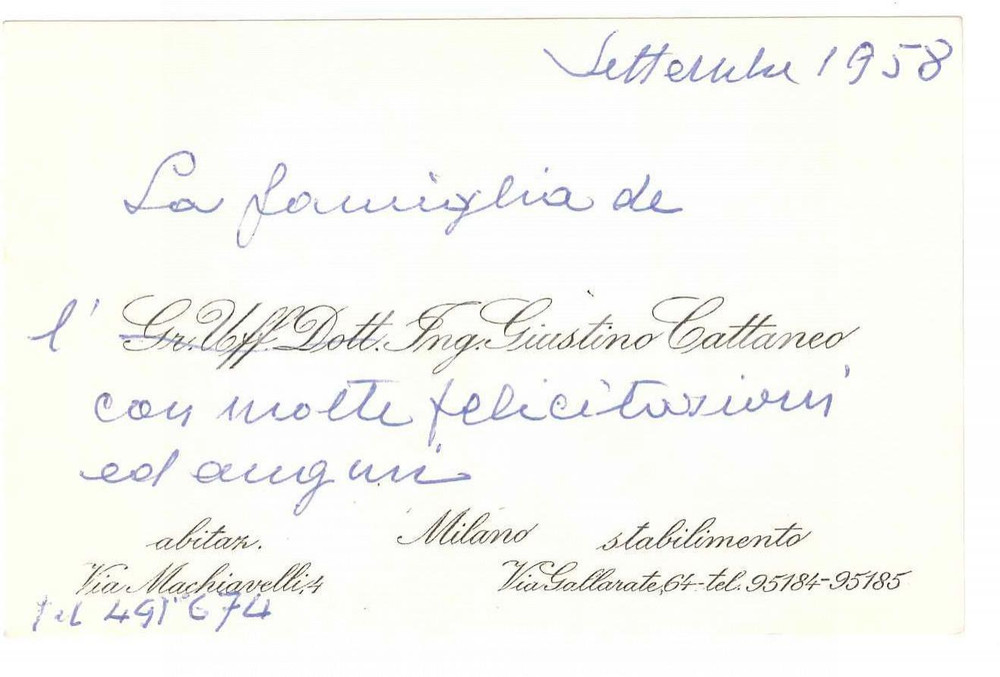 Settembre 1958
La famiglia de
l' Gr. Uff. Dott. Ing. Giustino Cattaneo
con molte felicitazioni
ed auguri
abitaz. Milano stabilimento
Via Machiavelli, 4 Via Gallarate, 64 - tel. 95184 - 95185
tel 491674